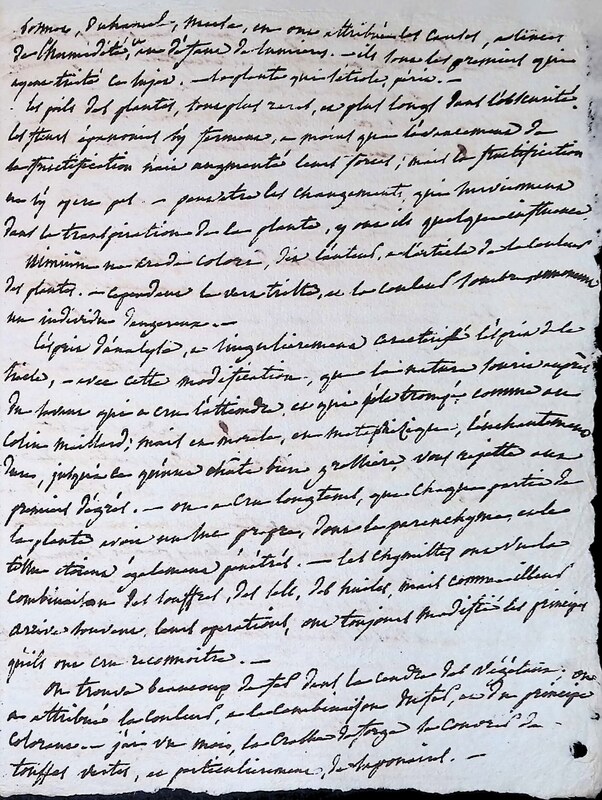 Bonnet, Duhamel, Meese, en ont attribué les causes, a l'excès
de l'humidité, au défaut de lumiere. - ils sont les premiers qui
ayent traité ce sujet. - la plante qui s'étiole, périt. -
les poils des plantes, sont plus rares, et plus longs dans l'obscurité.
les fleurs épanouies s'y ferment, a moins que l'avancement de
la fructification n'ait augmenté leurs forces; mais la fructification
ne s'y opere pas. - peut etre les changements, qui surviennent
dans la transpiration de la plante, y ont ils quelque influence
Nimium ne crede colori, dit l'auteur, a l'article de la couleur
des plantes. - Cependant le verd triste, et la couleur sombre, annoncent
un individu dangereux. -
l'esprit d'analyse, a singulierement caractérisé l'esprit de ce
siecle, - avec cette modification, que la nature sourit auprès
du savant qui a cru l'atteindre, et qui s'est trompé, comme au
Colin Maillard; mais en morale, en métaphisique, l'enchantement
dure, jusqu'a ce qu'une chûte bien grossiere, vous rejette aux
premiers dégrés. - on a cru longtems, que chaque partie de
la plante avoit un suc propre, dont le parenchyme, et le
tissu etoient également pénétrés. - les chymistes ont vu la
combinaison des souffres, des sels, des huiles, mais comme ailleurs
arrive souvent, leurs operations, ont toujours modifié les principes
qu'ils ont cru reconnoitre. -
On trouve beaucoup de fer dans la cendre des végétaux. on
a attribué la couleur, a la combinaison du fer, et du principe
colorant. - j'ai vu moi, la crasse de forge se couvrir de
touffes vertes, et particulierement, de saponaires. -